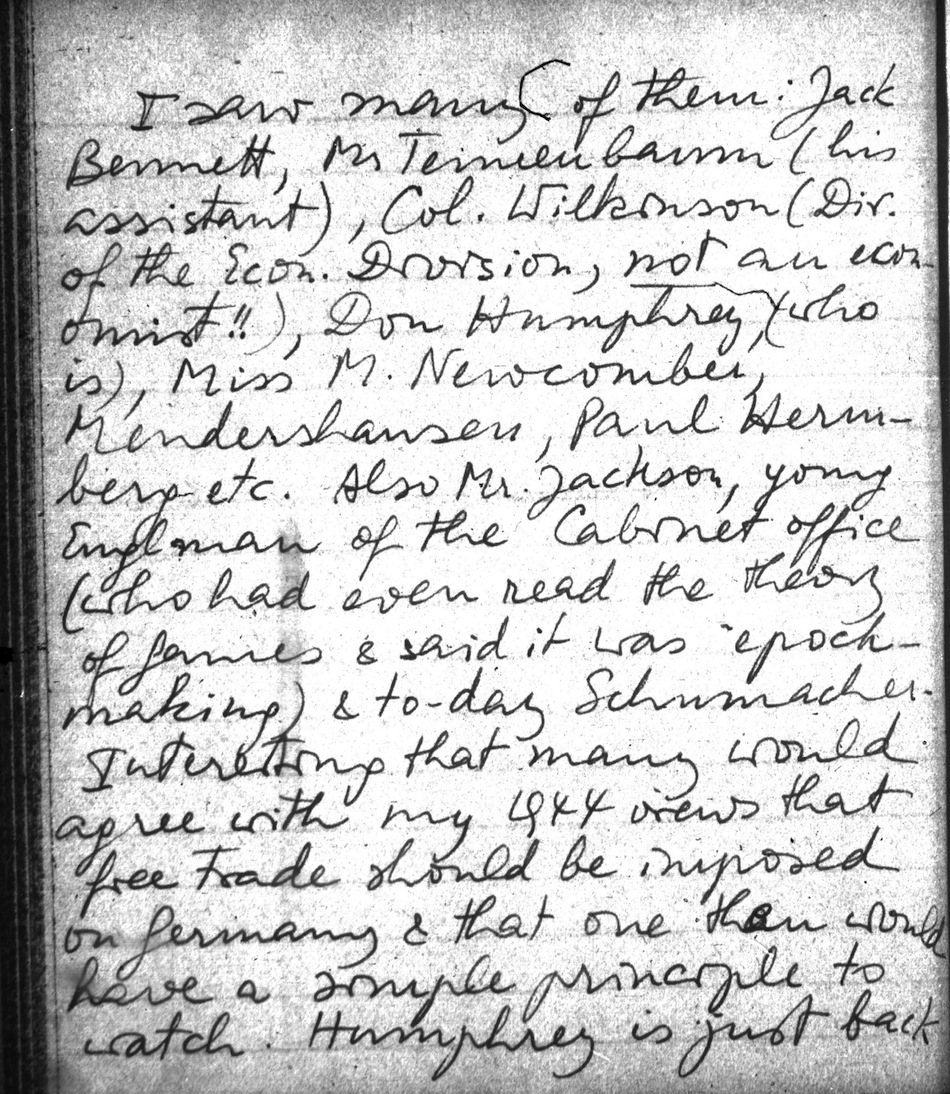 I saw many of them: Jack
Bennett, Mr Tennenbaum (his
assistant), Col. Wilkinson (Dir.
of the Econ. Division, not an econ-
omist!!), Don Humphrey, (who
is), Miss M. Newcomber,
Mendershausen, Paul Herm-
berg etc. Also Mr. Jackson, young
Englman of the Cabinet office
(who had even read the theory
of games & said it was "epoch-
making) & to-day Schumacher.
Interesting that many would
agree with my 1944 views that
free trade should be imposed
on Germany & that one then would
have a simple principle to
watch. Humphrey is just back